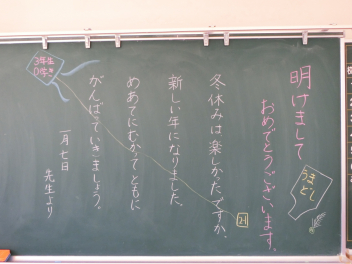 明けまして
おめでとうございます。
うまどし
冬休みは楽しかたですか。
新しい年になりました。
めあてにむかてともに
がんばていきましょう。
一月七日
先生より
3年生